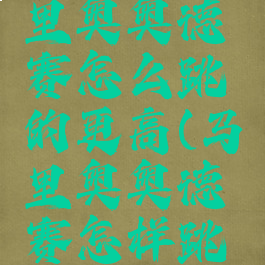 里奥奥德
赛怎么跳
的更高(马
里奥奥德
赛怎样跳